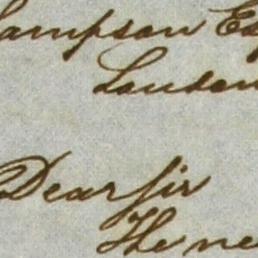 ampson Es
London
Dear Sir
The ne